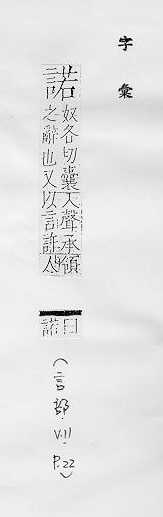 字彙
諾奴各切囊入聲承領
之辭也又以言許人
曰諾
(言部 V.11 P.22)